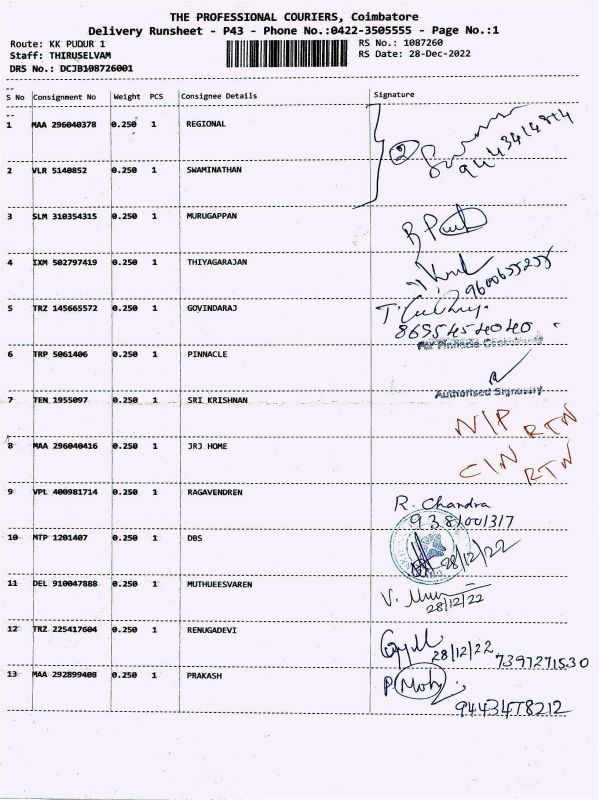 THE PROFESSIONAL COURIERS, Coimbatore
Delivery Runsheet - P43 - Phone No.:0422-3505555 - Page No.:1
Route: KK PUDUR 1 RS No.: 1087260
Staff: THIRUSELVAM RS Date: 28-Dec-2022
DRS No.: DCJB108726001
S No Consignment No Weight PCS Consignee Details Signature
1 MAA 296040378 0.250 1 REGIONAL
2 VLR 5140852 0.250 1 SWAMINATHAN
3 SLM 310354315 0.250 1 MURUGAPPAN
4 IXM 502797419 0.250 1 THIYAGARAJAN
9600655255
5 TRZ 145665572 0.250 1 GOVINDARAJ
8695454040
6 TRP 5061406 0.250 1 PINNACLE
Authorised Signatory
7 TEN 1955097 0.250 1 SRI KRISHNAN N/P RTN
8 MAA 296040416 0.250 1 JRJ HOME C/N RTN
9 VPL 400981714 0.250 1 RAGAVENDREN R. Chandra
9381001317
10 MTP 1201407 0.250 1 DBS 28/12/22
11 DEL 910047888 0.250 1 MUTHUEESVAREN
28/12/22
12 TRZ 225417604 0.250 1 RENUGADEVI 28/12/22 7397271530
13 MAA 292899408 0.250 1 PRAKASH P. Moh
9443478212